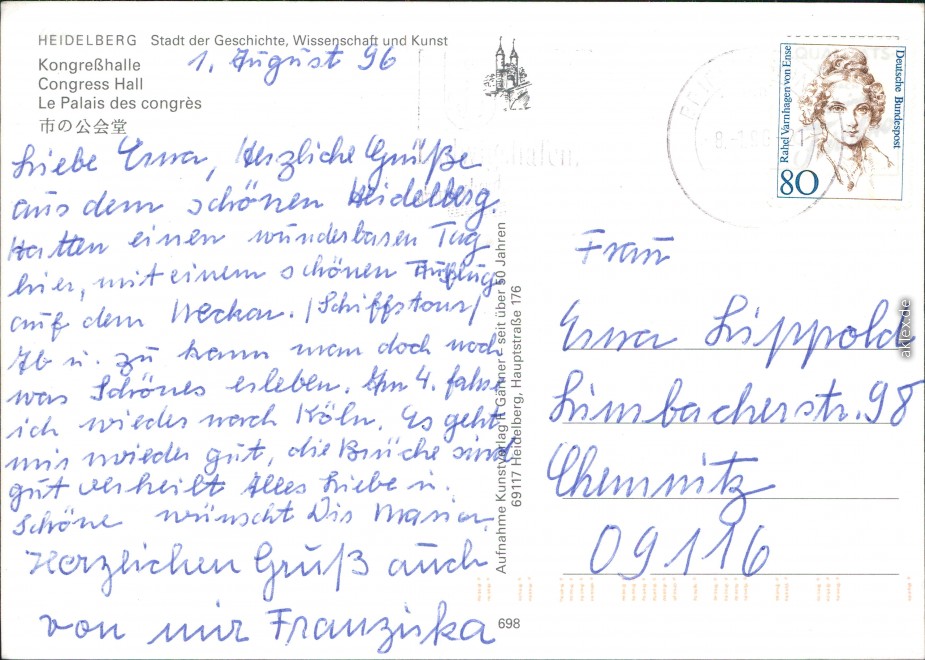 HEIDELBERG Stadt der Geschichte, Wissenschaft und Kunst
Kongreßhalle
Congress Hall
Le Palais des congrès
市の公会堂
1. August 96
Liebe Erna, Herzliche Grüße
aus dem schönen Heidelberg.
Hatten einen wunderbaren Tag
hier, mit einem schönen Ausflug
auf dem Neckar. /Schiffstour/
Ab u. zu kann man doch noch
was Schönes erleben. Am 4. fahre
ich wieder nach Köln. Es geht
mir wieder gut, die Brüche sind
gut verheilt Alles Liebe u.
Schöne wünscht Dir
Herzlichen Gruß auch
von mir Franziska
Aufnahme Kunstverlag R Gärtner – seit über 50 Jahren
69117 Heidelberg, Hauptstraße 176
698
Rahel Varnhagen von Ense
Deutsche Bundespost
80
Frau
Erna Lippold
Limbacherstr. 98
Chemnitz
09116
akpool.de